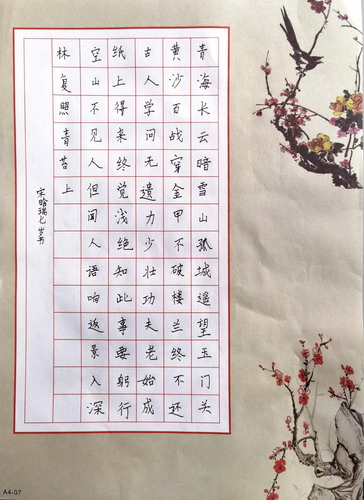 青海长云暗雪山孤城遥望玉门头
黄沙百战穿金甲不破楼兰终不还
古人学问无遗力少壮功夫老始成
纸上得来终觉浅绝知此事要躬行
空山不见人但闻人语响返景入深
林复照青苔上
宋晗瑞七岁书
A4-07